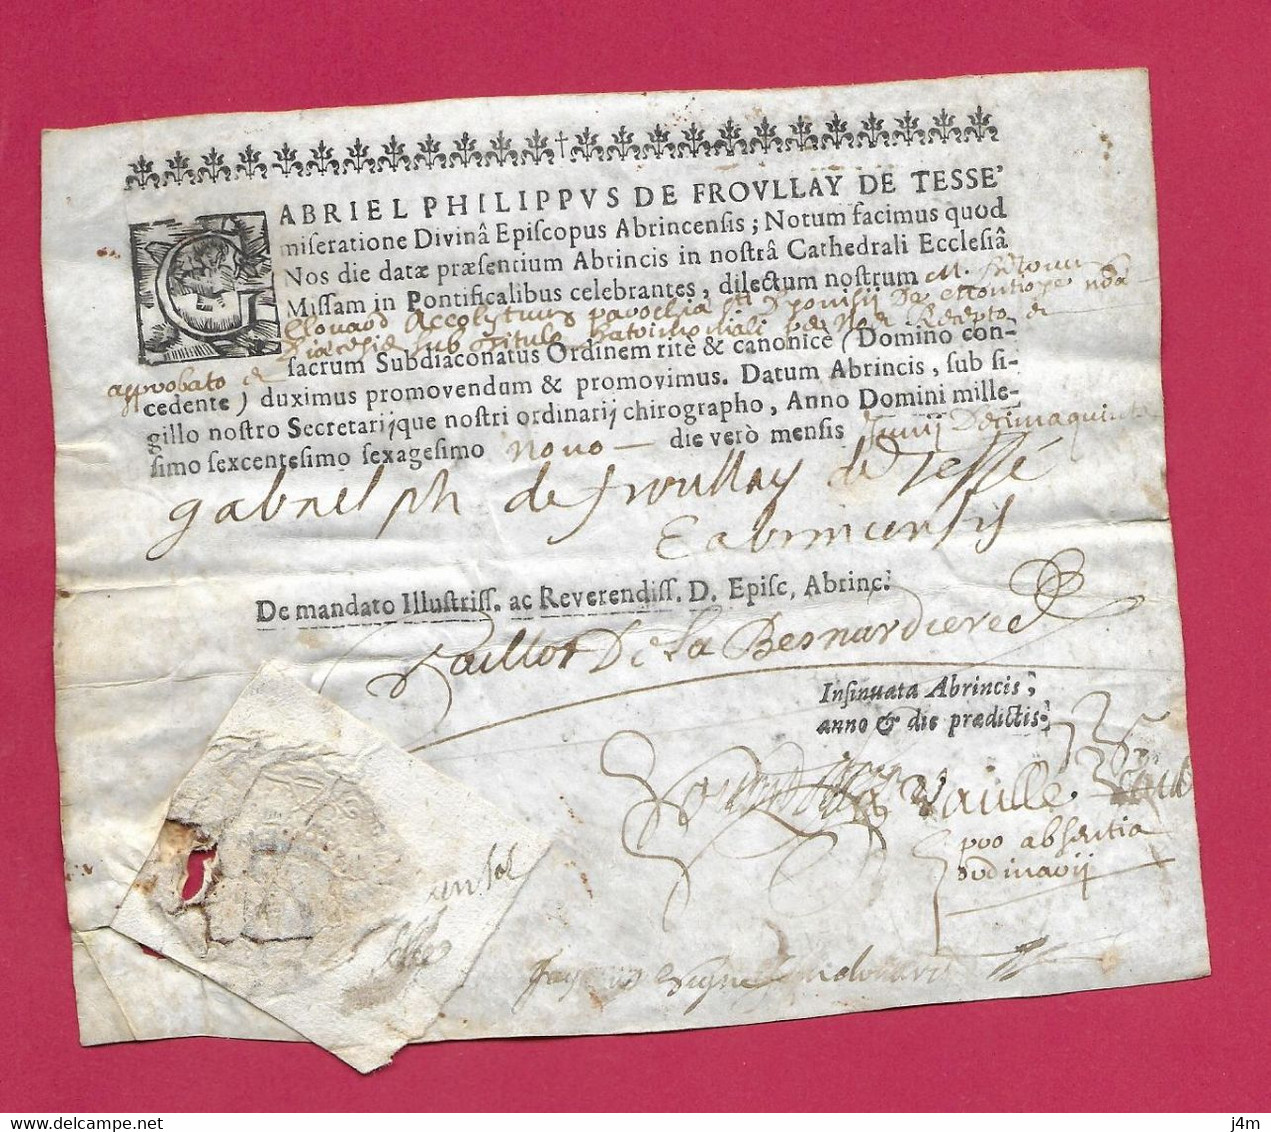 GABRIEL PHILIPPVS DE FROVLLAY DE TESSE'
miſeratione Divinâ Epiſcopus Abrincenſis; Notum facimus quod
Nos die datæ præſentium Abrincis in noſtrâ Cathedrali Eccleſiâ
Miſſam in Pontificalibus celebrantes, dilectum noſtrum M.
Accolytum parochia sti Dponisii De
Diocesis sub titulo patrimoniali Recepto &
approbato &
ſacrum Subdiaconatus Ordinem ritè & canonicè (Domino con-
cedente) duximus promovendum & promovimus. Datum Abrincis, ſub ſi-
gillo noſtro Secretarijque noſtri ordinarij chirographo, Anno Domini mille-
ſimo ſexcenteſimo ſexageſimo nono — die verò menſis Junij Decimaquinta
gabriel ph de froullay de Tessé
E abrincensis
De mandato Illuſtriſſ. ac Reverendiſſ. D. Epiſc, Abrinc.
De La Besnardiere
Inſinuata Abrincis,
anno & die prædictis.
Vaulle.
pro absentia
ordinarij
j4m